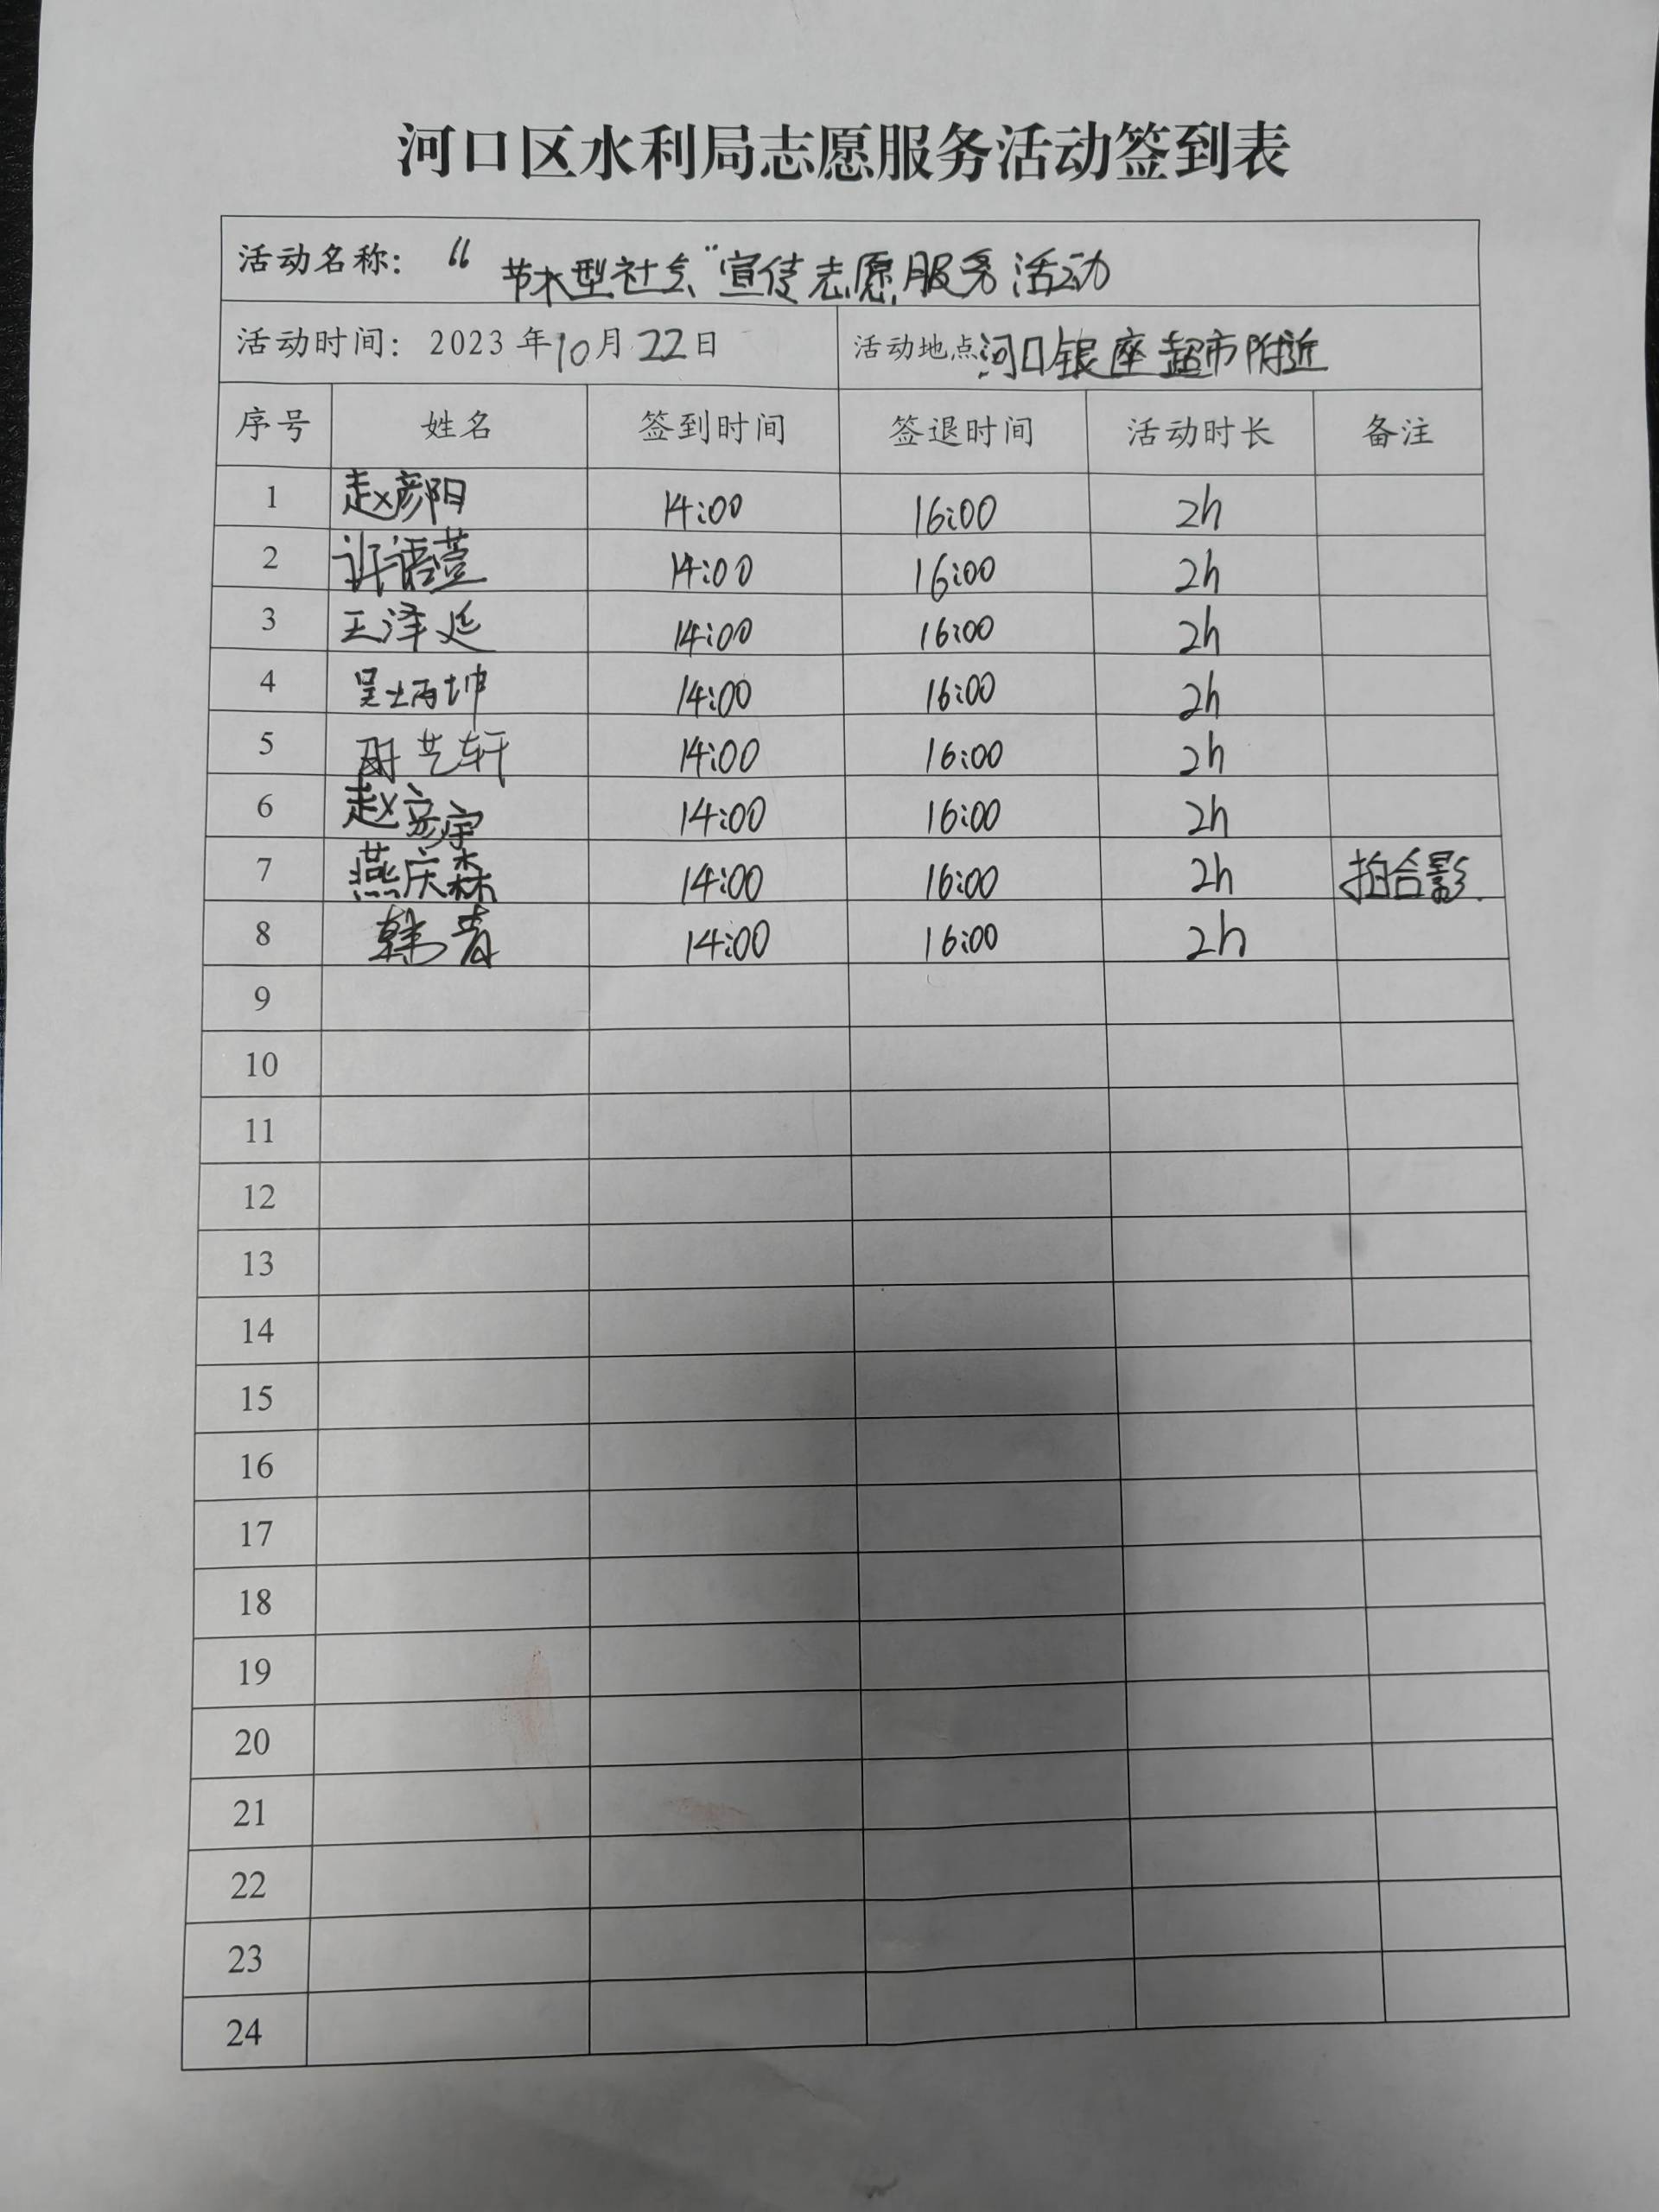 河口区水利局志愿服务活动签到表
活动名称：“节水型社会”宣传志愿服务活动
活动时间：2023年10月22日 活动地点 河口银座超市附近
序号 姓名 签到时间 签退时间 活动时长 备注
1 赵彦阳 14:00 16:00 2h
2 许语萱 14:00 16:00 2h
3 王泽延 14:00 16:00 2h
4 吴炳坤 14:00 16:00 2h
5 艺轩 14:00 16:00 2h
6 赵彦宇 14:00 16:00 2h
7 燕庆森 14:00 16:00 2h 拍合影.
8 韩青 14:00 16:00 2h
9
10
11
12
13
14
15
16
17
18
19
20
21
22
23
24